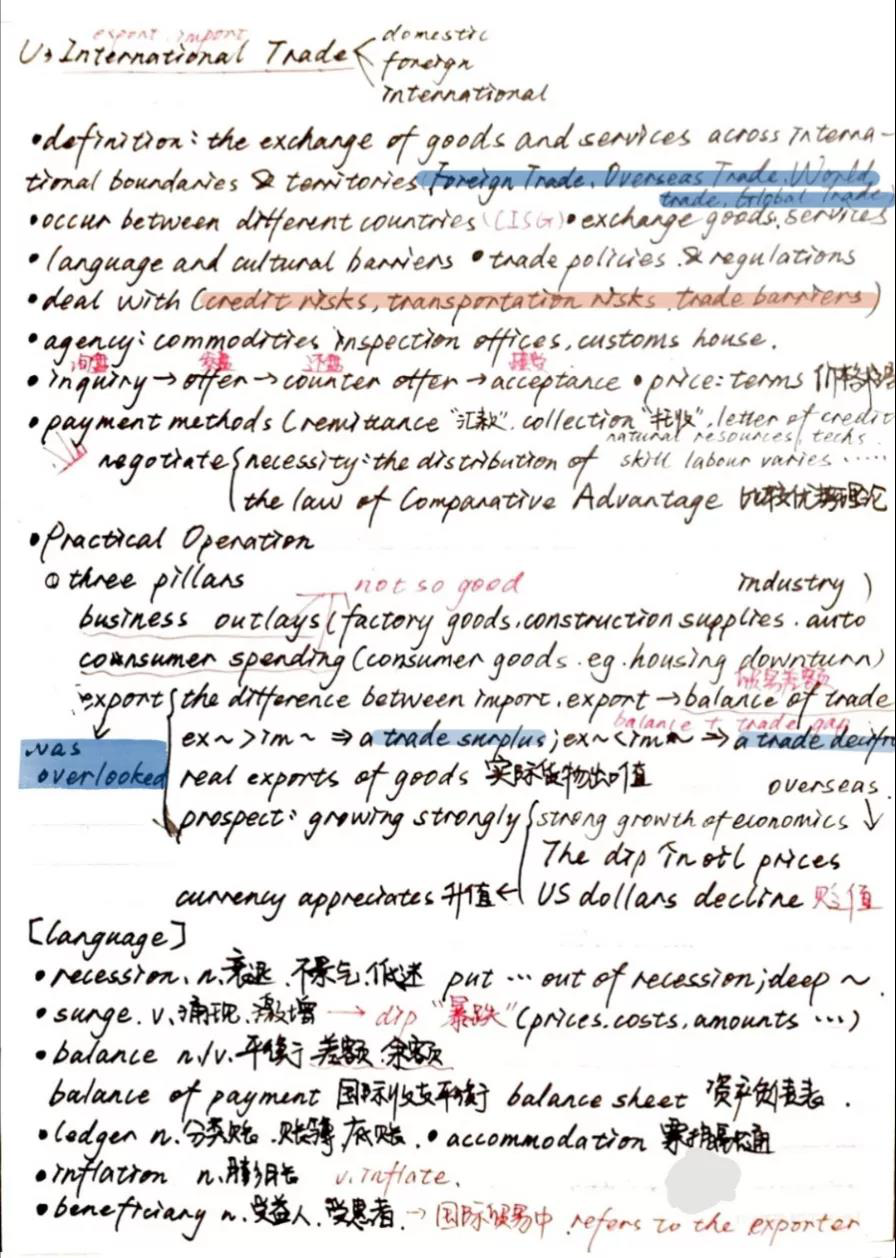 export import
U3 International Trade
domestic
foreign
international
•definition: the exchange of goods and services across Interna-
tional boundaries & territories Foreign Trade. Overseas Trade. World
trade, Global Trade
•occur between different countries (CISG) •exchange goods. services
•language and cultural barriers •trade policies & regulations
•deal with (credit risks, transportation risks. trade barriers)
•agency: commodities inspection offices, customs house.
询盘 发盘 还盘 接受
•inquiry→offer→counter offer→acceptance •price: terms 价格术语
•payment methods (remittance "汇款". collection "托收", letter of credit
natural resources, techs
negotiate necessity: the distribution of skill labour varies ……
the law of Comparative Advantage 比较优势理论
•Practical Operation
① three pillars not so good industry )
business outlays (factory goods. construction supplies. auto
consumer spending (consumer goods. eg. housing downturn)
贸易差额
export the difference between import. export → balance of trade
balance trade gap
ex~ > im~ ⇒ a trade surplus; ex~ < im~ ⇒ a trade
was
overlooked
real exports of goods 实际货物出口值
overseas.
prospect: growing strongly strong growth of economics
The dip in oil prices
currency appreciates 升值← US dollars decline 贬值
[language]
•recession. n. 衰退. 不景气. 低迷 put … out of recession; deep ~.
•surge. v. 涌现. 激增 → dip "暴跌" (prices. costs. amounts …)
•balance n./v. 平衡 差额. 余额
balance of payment 国际收支平衡 balance sheet 资产负债表.
•ledger n. 分类账. 账簿. 底账. •accommodation
•inflation n. 膨胀 v. inflate.
•beneficiary n. 受益人. 受惠者. → 国际贸易中 refers to the exporter